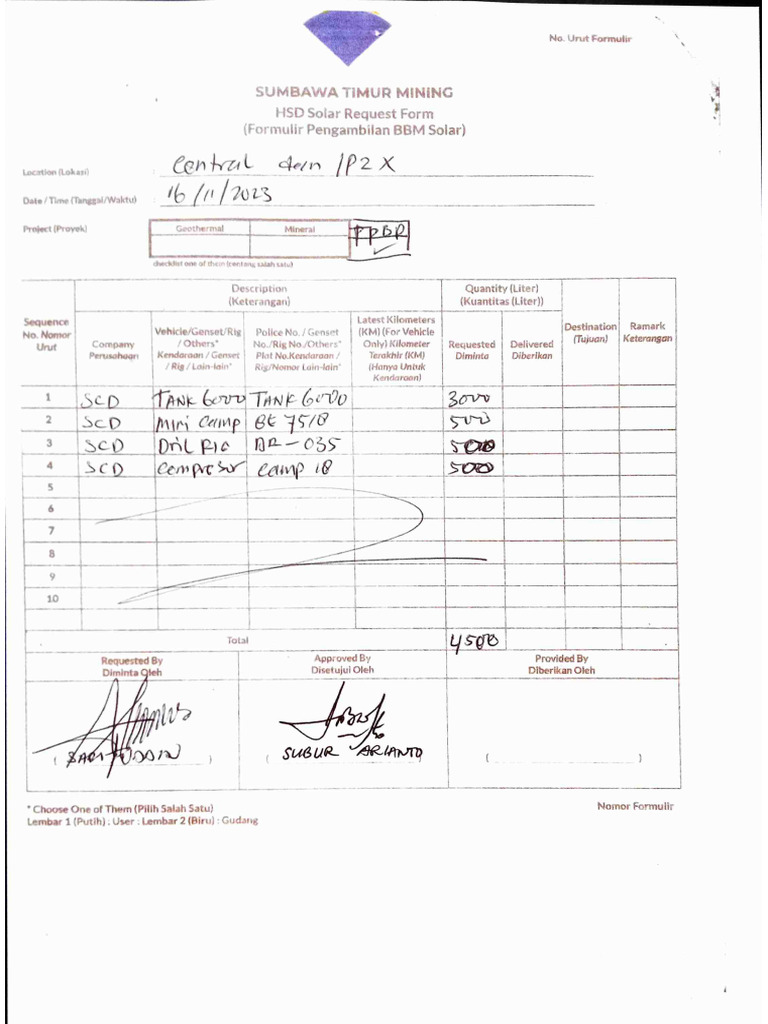 No. Urut Formulir
SUMBAWA TIMUR MINING
HSD Solar Request Form
(Formulir Pengambilan BBM Solar)
Location (Lokasi) : Central /P2 X
Date / Time (Tanggal/Waktu) : 16/11/2023
Project (Proyek) Geothermal Mineral
checklist one of them (centang salah satu)
Description
(Keterangan)
Quantity (Liter)
(Kuantitas (Liter))
Sequence
No. Nomor
Urut
Company
Perusahaan
Vehicle/Genset/Rig
/ Others*
Kendaraan / Genset
/ Rig / Lain-lain*
Police No. / Genset
No./Rig No./Others*
Plat No.Kendaraan /
Rig/Nomor Lain-lain*
Latest Kilometers
(KM) (For Vehicle
Only) Kilometer
Terakhir (KM)
(Hanya Untuk
Kendaraan)
Requested
Diminta
Delivered
Diberikan
Destination
(Tujuan)
Ramark
Keterangan
1 SCD TANK 6000 TANK 6000 3000
2 SCD Mini Camp BE 7518 500
3 SCD Dril RIG DR-035 500
4 SCD Compresor Camp 18 500
5
6
7
8
9
10
Total 4500
Requested By
Diminta Oleh
Approved By
Disetujui Oleh
Provided By
Diberikan Oleh
( ) ( SUBUR ARIANTO ) ( )
* Choose One of Them (Pilih Salah Satu)
Nomor Formulir
Lembar 1 (Putih) : User : Lembar 2 (Biru) : Gudang